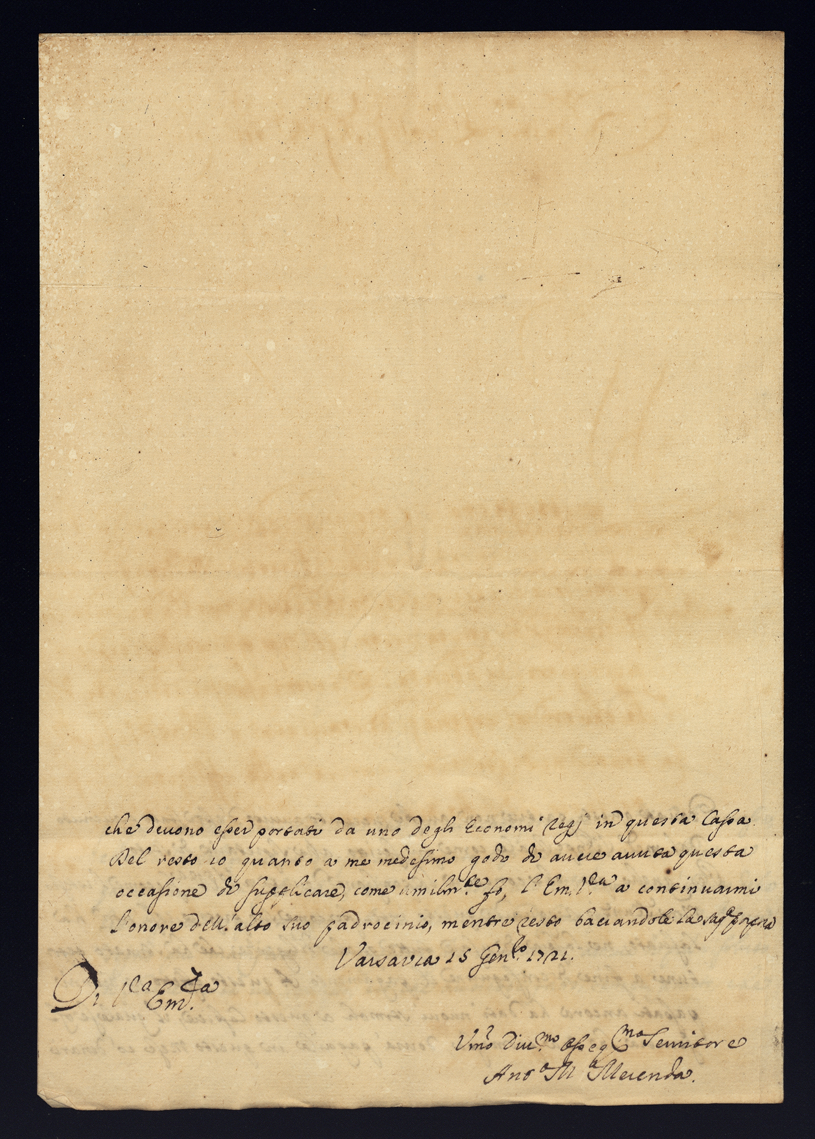 che devono esser portati da uno degli Economi regj in questa Cassa.
Del resto io quanto a me medesimo godo di avere avuta questa
occasione di supplicare, come umilm.te fò, l'Em. V.ra a continuarmi
l'onore dell'alto suo padrocinio, mentre resto baciandole la
Varsavia 15 Genn.o 1721.
Di V.ra Em.za
Um.o Div.mo Osseq.mo Servitore
Ant.o M.a Merenda.